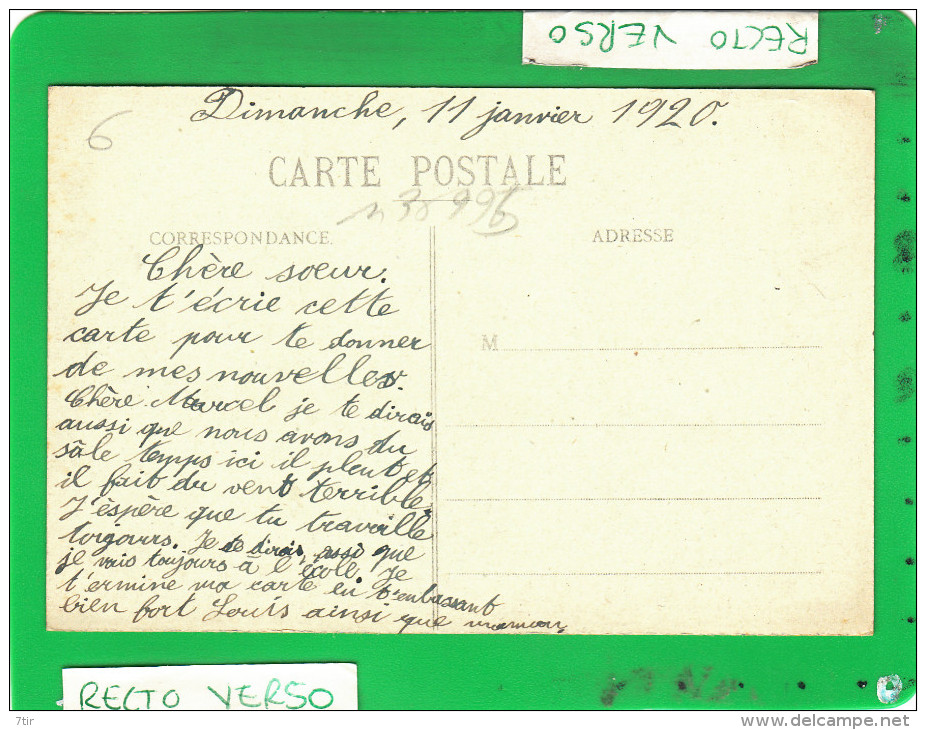 RECTO VERSO
Dimanche, 11 janvier 1920.
6
CARTE POSTALE
CORRESPONDANCE.
ADRESSE
Chère soeur.
Je t'écrie cette
carte pour te donner
de mes nouvelles.
Chère Marcel je te dirais
aussi que nous avons du
sâle temps ici il pleut et
il fait du vent terrible.
J'éspère que tu travaille
toujours. Je te dirais aussi que
je vais toujours à l'école. Je
t'ermine ma carte en t'embassant
bien fort Louis ainsi que maman.
M
RECTO VERSO
7tir
www.delcampe.net